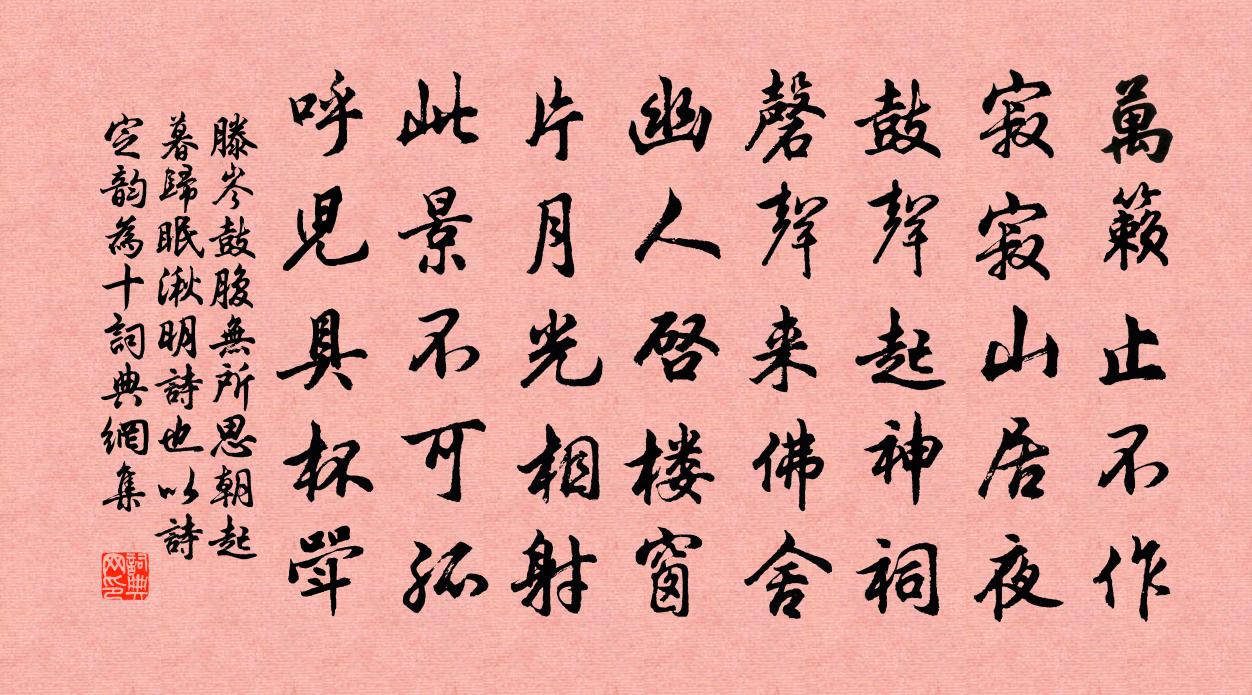 萬籟止不作
寂寂山居夜
鼓聲起神祠
磬聲来佛舍
幽人啓楼窗
片月光相射
此景不可孤
呼児具杯斝
滕岑鼓腹無所思朝起
暮歸眠湫明詩也以詩
定韵為十詞典網集
詞典网印